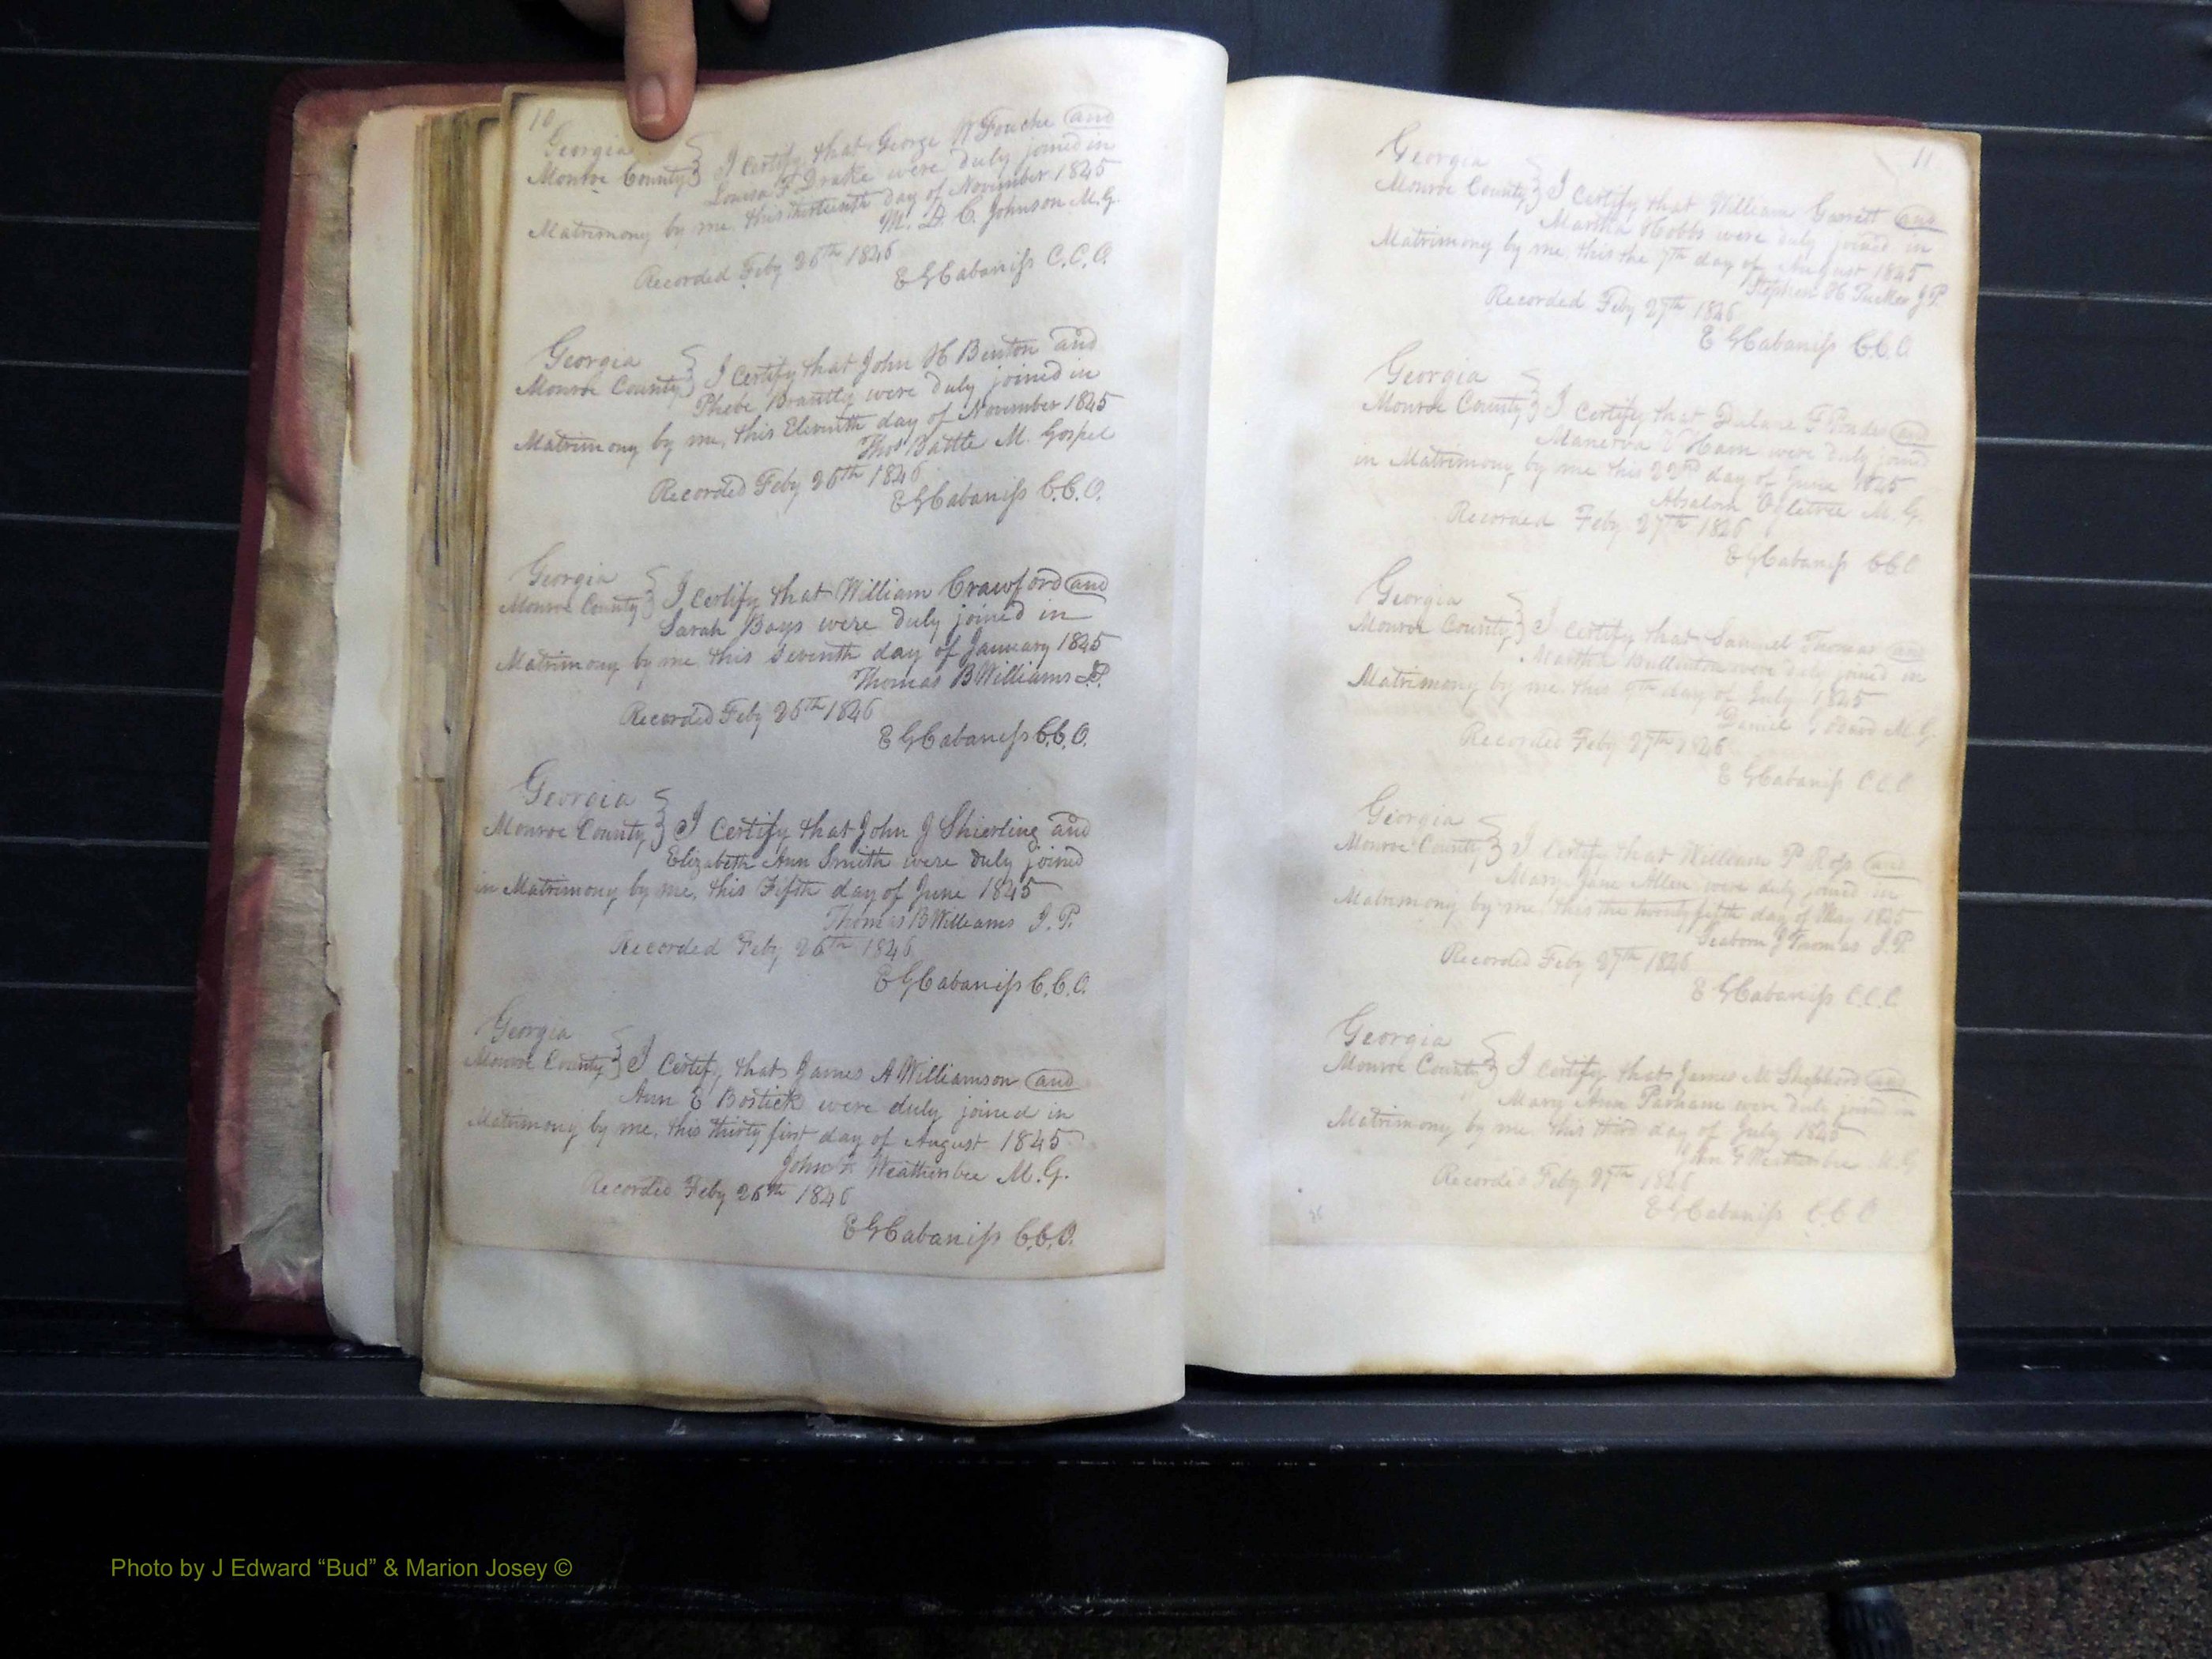 10
Georgia
Monroe County } I Certify that George W Fouche and
Louisa F Drake were duly joined in
Matrimony by me, this thirteenth day of November 1845
M. D. C. Johnson M.G.
Recorded Feby 26th 1846
E G Cabaniss C.C.O.
Georgia
Monroe County } I Certify that John H Benton and
Phebe Brantly were duly joined in
Matrimony by me, this Eleventh day of November 1845
Thos Battle M. Gospel
Recorded Feby 26th 1846
E G Cabaniss C.C.O.
Georgia
Monroe County } I Certify that William Crawford and
Sarah Bays were duly joined in
Matrimony by me this Seventh day of January 1845
Thomas B Williams J.P.
Recorded Feby 26th 1846
E G Cabaniss C.C.O.
Georgia
Monroe County } I Certify that John J Shierling and
Elizabeth Ann Smith were duly joined
in Matrimony by me, this Fifth day of June 1845
Thomas B Williams J.P.
Recorded Feby 26th 1846
E G Cabaniss C.C.O.
Georgia
Monroe County } I Certify that James A Williamson and
Ann E Bostick were duly joined in
Matrimony by me, this thirty first day of August 1845
John F Weathersbee M.G.
Recorded Feby 26th 1846
E G Cabaniss C.C.O.
11
Georgia
Monroe County } I Certify that William Garrett and
Martha Hobbs were duly joined in
Matrimony by me, this the 7th day of August 1845
Stephen H Tucker J.P.
Recorded Feby 27th 1846
E G Cabaniss C.C.O
Georgia
Monroe County } I Certify that F Ponder and
Manerva V Ham were duly joined
in Matrimony by me this 22nd day of June 1845
Absalom Ogletree M.G.
Recorded Feby 27th 1846
E G Cabaniss C.C.O
Georgia
Monroe County } I Certify that Samuel Thomas and
Martha were duly joined in
Matrimony by me, this 9th day of July 1845
Daniel M.G.
Recorded Feby 27th 1846
E G Cabaniss C.C.O
Georgia
Monroe County } I Certify that William P Ross and
Mary Jane Allen were duly joined in
Matrimony by me, this the twenty fifth day of May 1845
Seaborn J Thomas J.P.
Recorded Feby 27th 1846
E G Cabaniss C.C.O.
Georgia
Monroe County } I Certify that James M Shepherd and
Mary Ann Parham were duly joined in
Matrimony by me, this third day of July 1845
John F Weathersbee M.G
Recorded Feby 27th 1846
E G Cabaniss C.C.O
Photo by J Edward “Bud” & Marion Josey ©